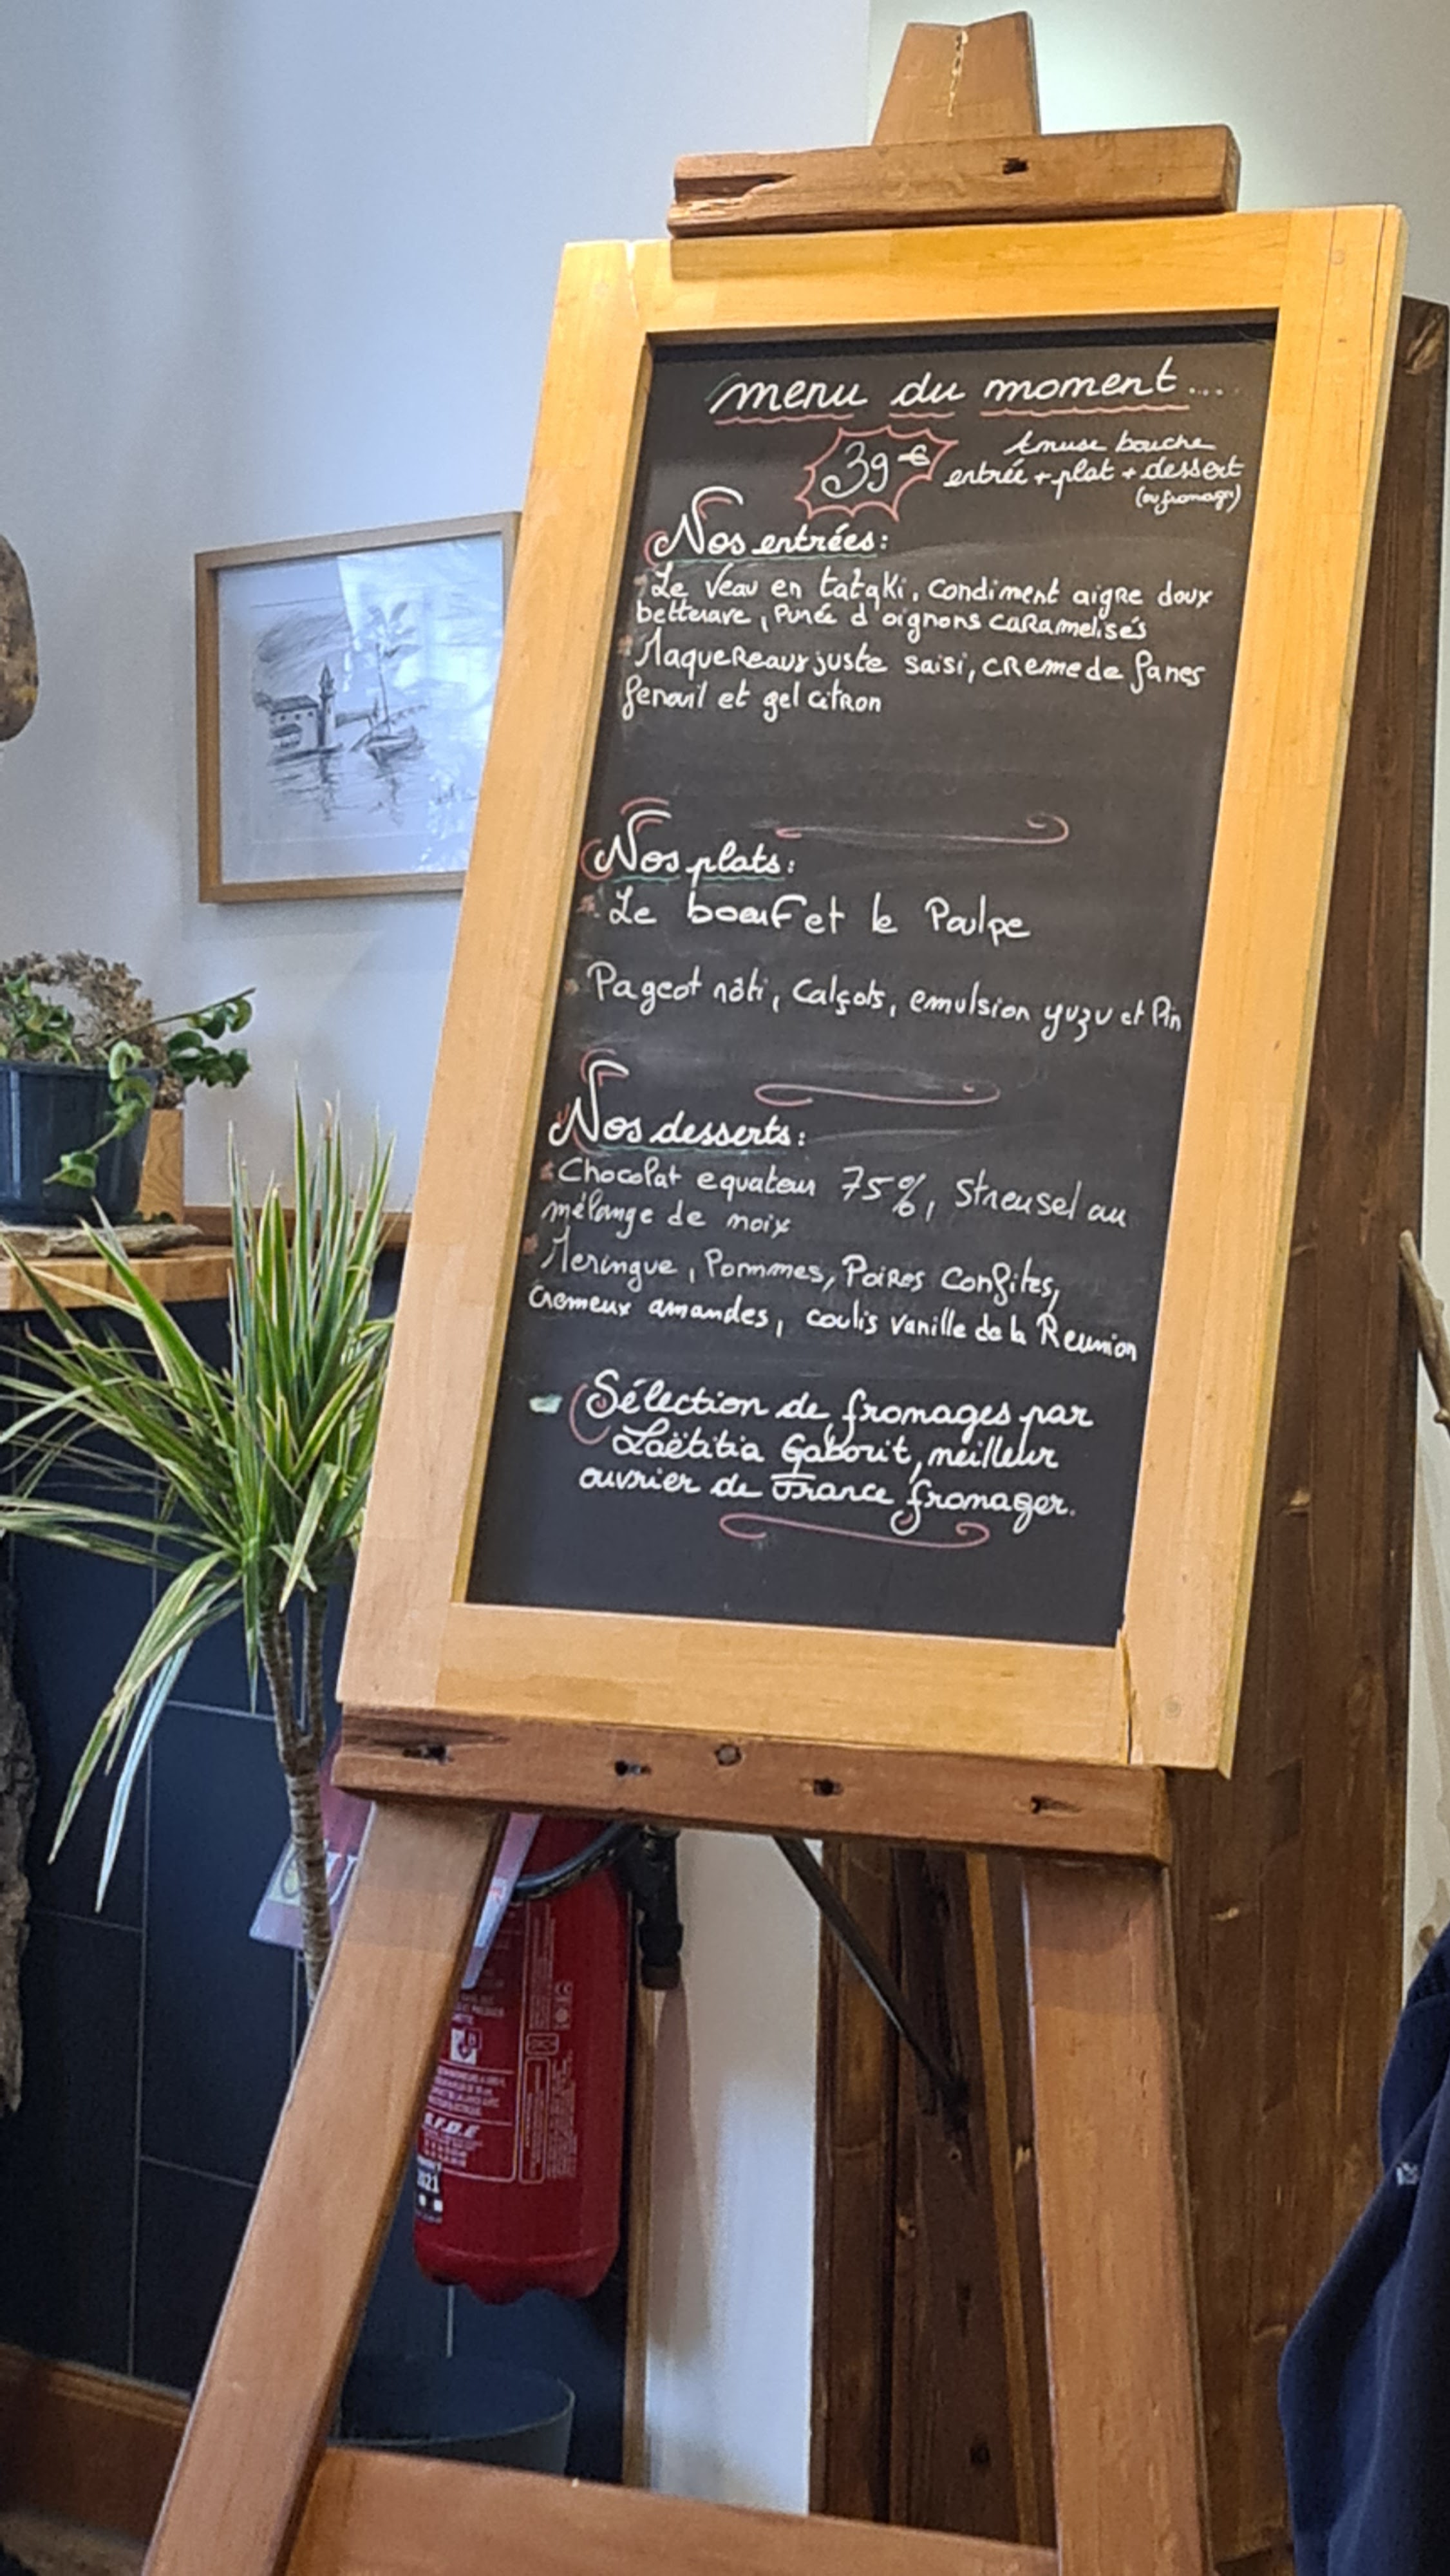 menu du moment....
39€
Amuse bouche
entrée + plat + dessert
(ou fromage)
Nos entrées:
Le Veau en tataki, Condiment aigre doux
betterave, Purée d'oignons caramelisés
Maquereaux juste saisi, creme de fanes
fenouil et gel citron
Nos plats:
Le boeuf et le Poulpe
Pageot rôti, Calçots, emulsion yuzu et Pin
Nos desserts:
Chocolat equateur 75%, Streusel au
mélange de noix
Meringue, Pommes, Poires Confites,
Cremeux amandes, coulis vanille de la Reunion
Sélection de fromages par
Laëtitia Gaborit, meilleur
ouvrier de France fromager.
2021